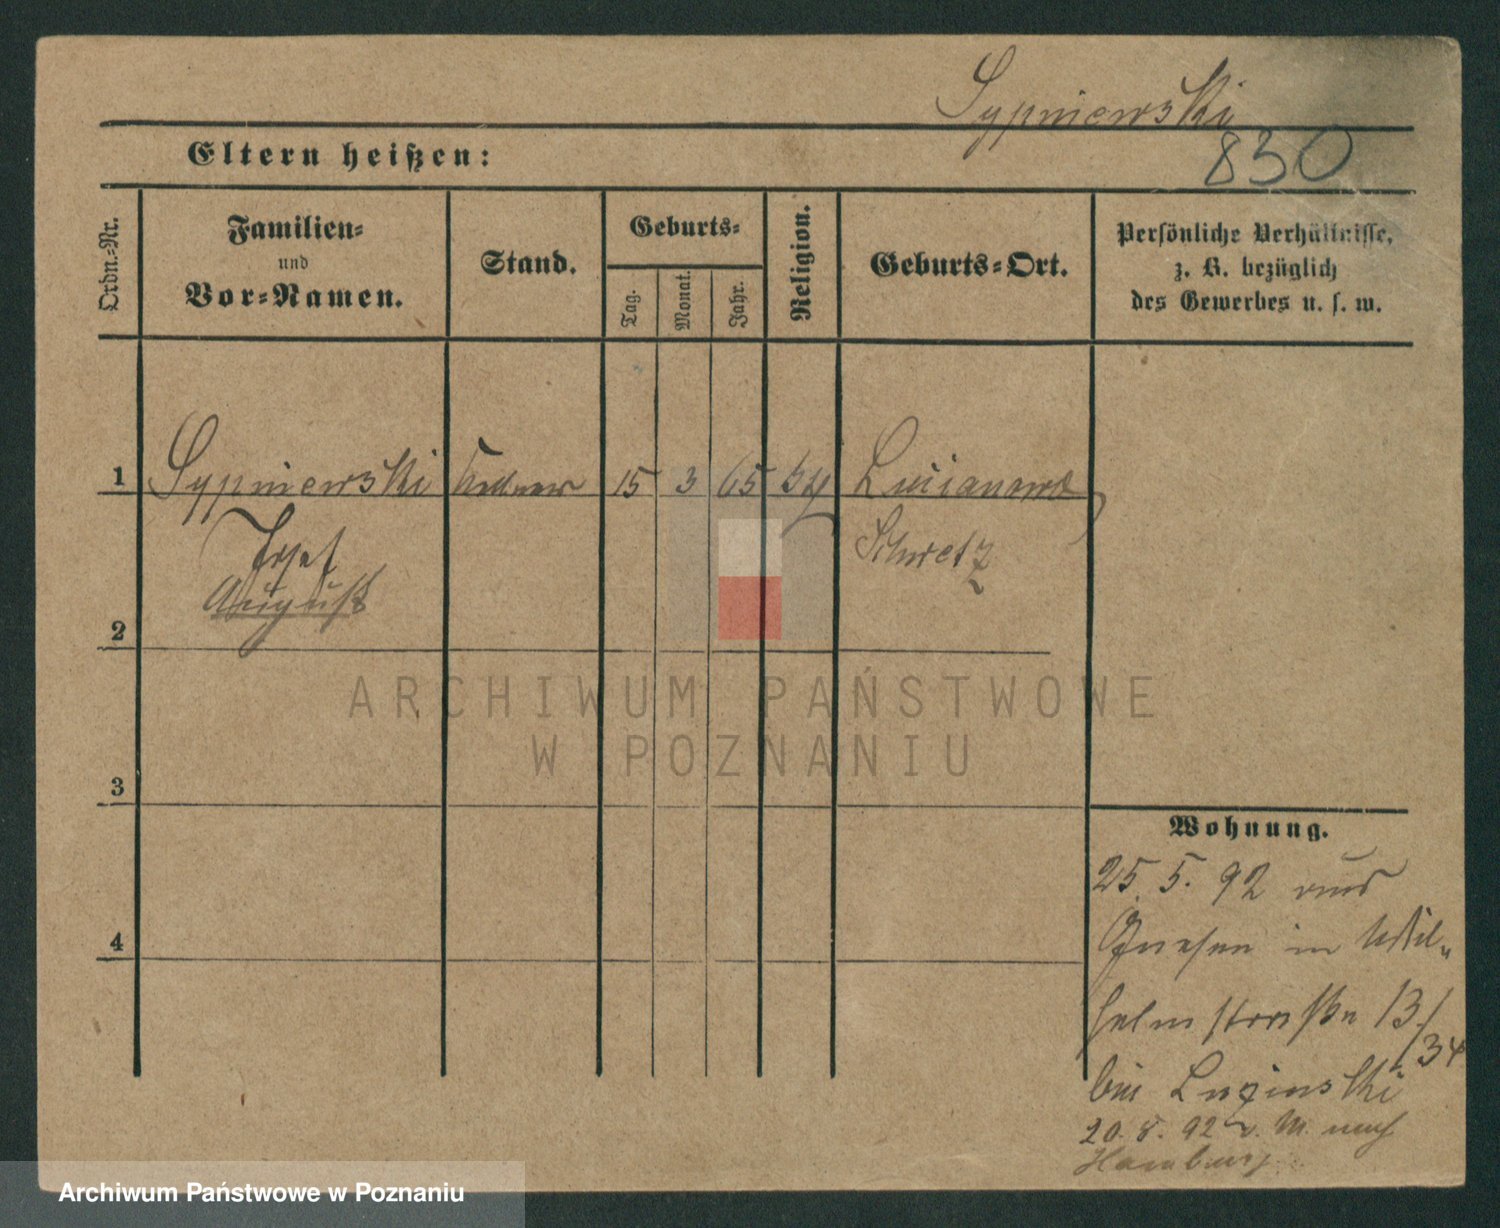 Sypniewski
830
Eltern heißen:
Ordn.-Nr.
Familien-
und
Vor-Namen.
Stand.
Geburts-
Tag.
Monat.
Jahr.
Religion.
Geburts-Ort.
Persönliche Verhältnisse,
z. B. bezüglich
des Gewerbes u. s. w.
1 Sypniewski Kellner 15 3 65 Lucianowo
Josef Schwetz
August
2
3
4
ARCHIWUM PAŃSTWOWE
W POZNANIU
Wohnung.
25. 5. 92 aus
Gnesen in Wil-
helmstraße 13/
34
bei
20. 8. 92 v. M. nach
Hamburg
Archiwum Państwowe w Poznaniu